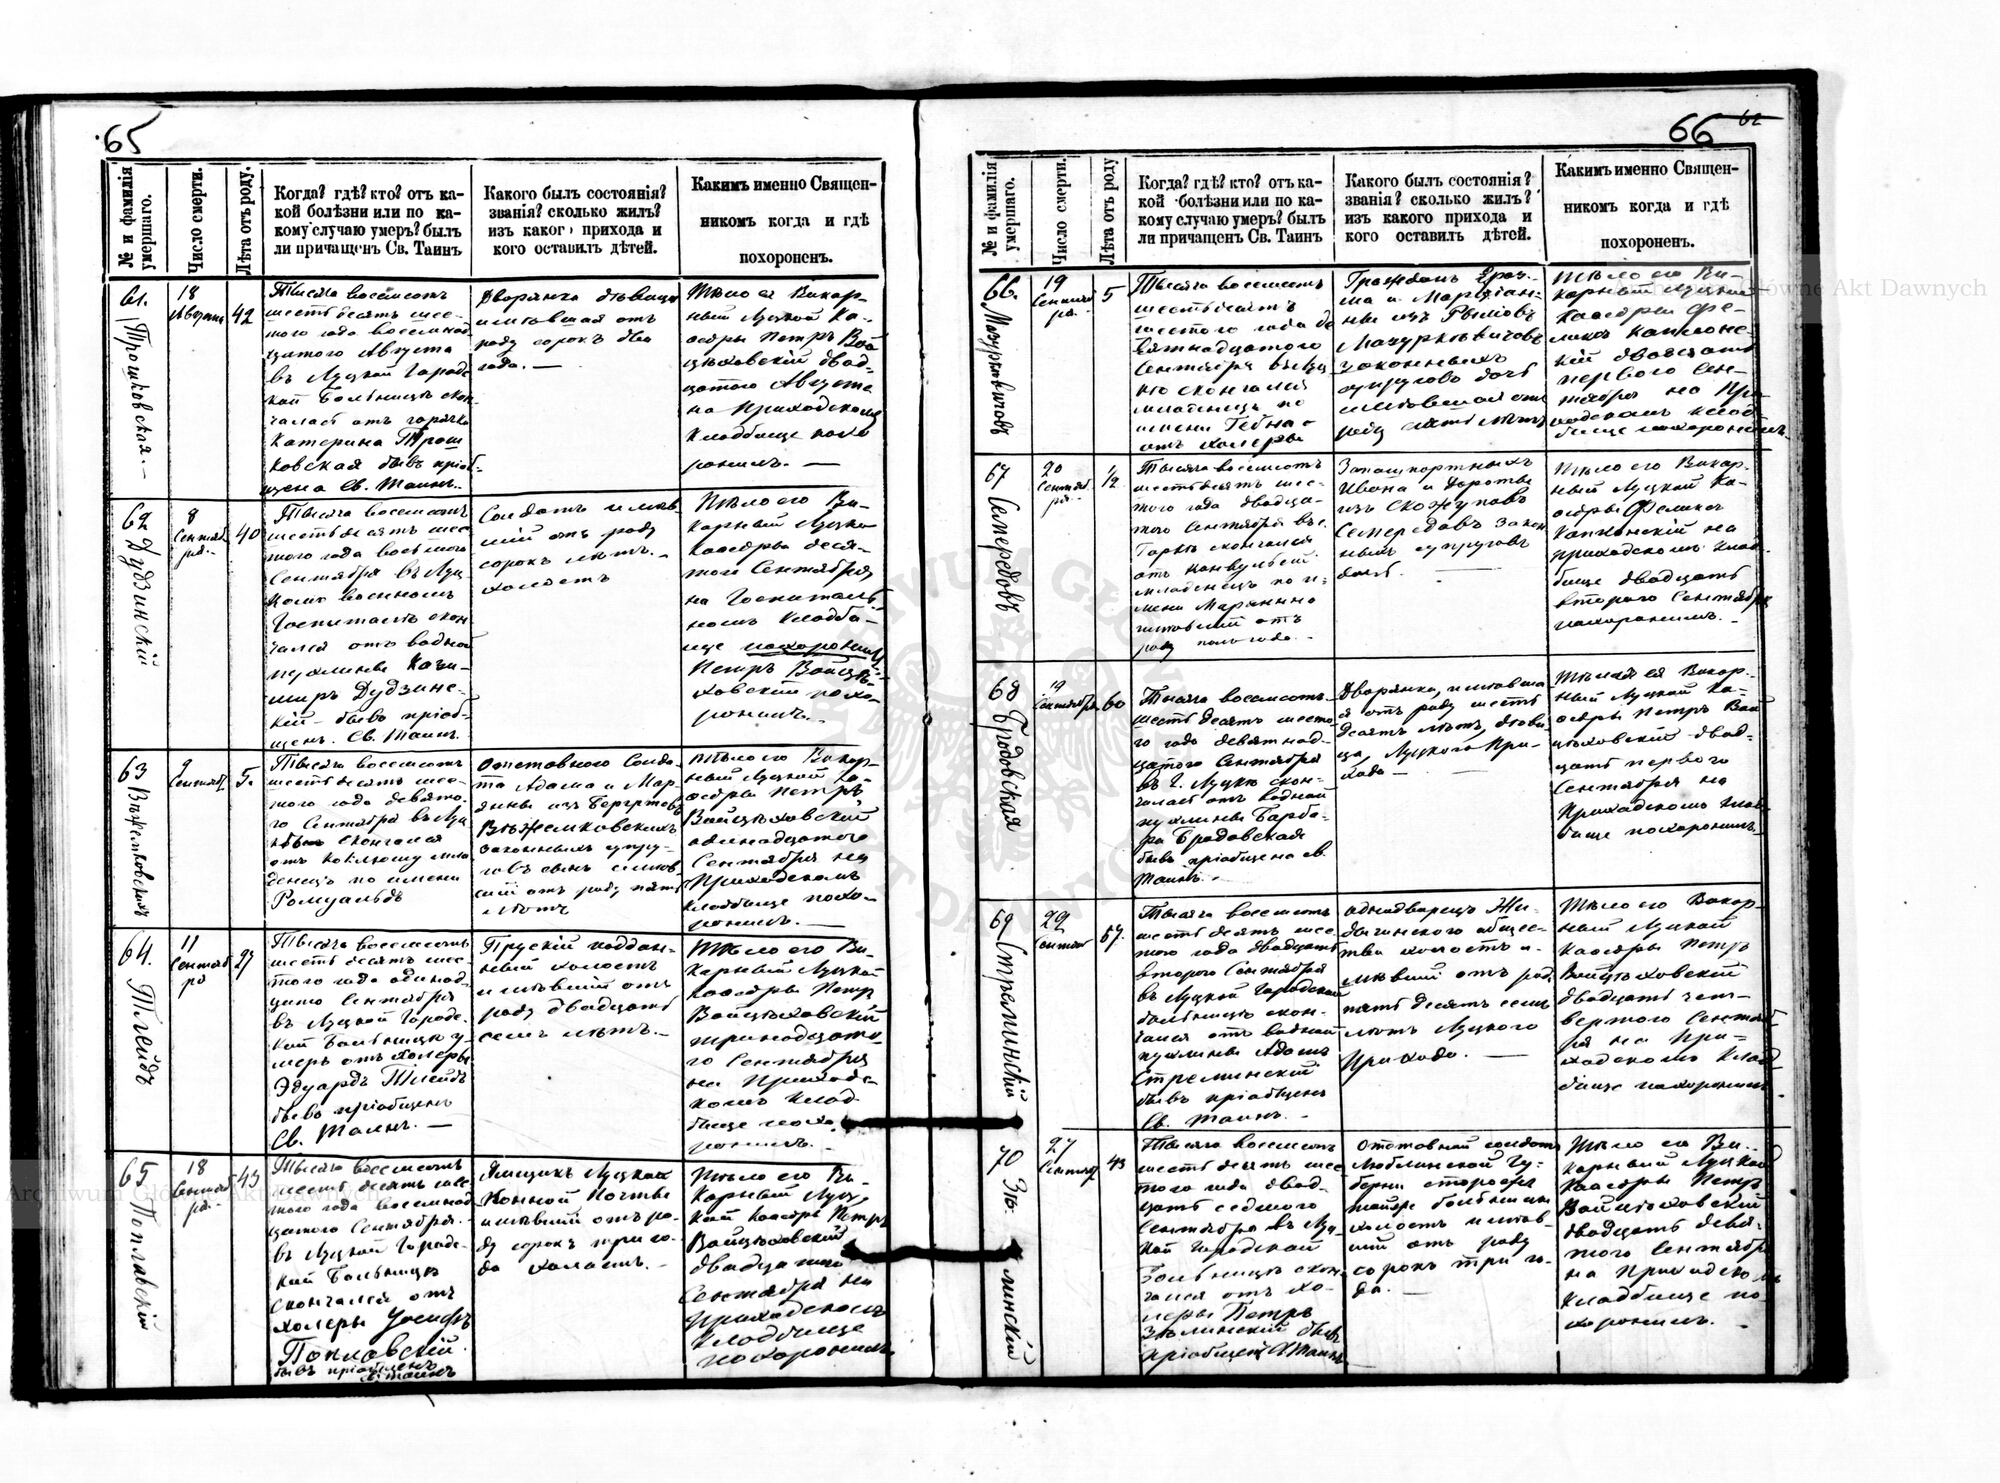 65
№ и фамилія умершаго.
Число смерти.
Лѣта отъ роду.
Когда? гдѣ? кто? отъ ка-
кой болѣзни или по ка-
кому случаю умеръ? былъ
ли причащенъ Св. Таинъ
Какого былъ состоянія?
званія? сколько жилъ?
изъ какого прихода и
кого оставилъ дѣтей.
Каимъ именно Священ-
никомъ когда и гдѣ
похороненъ.
61. Трошковская.
18
Августа
42
Тысяча восемсотъ
шестьдесятъ шес-
того года восемнад-
цатого Августа
въ Луцкой Городс-
кой Больницѣ скон-
чалась отъ горячки
Катерина Трош
ковская бывъ пріоб-
щена Св. Таинъ.
Дворянка дѣвица
имѣвшая отъ
роду сорокъ два
года. —
Тѣло ея Викар-
ный Луцкой Ка-
ѳедры Петръ Вой
цѣховскій двад-
цатого Августа
на Приходскомъ
Кладбище похо
ронилъ. —
62 Дудзинскій
8
Сентяб
ря.
40
Тысяча восемсотъ
шестьдесятъ шес
того года восьмого
Сентября въ Луц
комъ военномъ
Госпиталѣ скон
чался отъ водной
пухлины Кази-
миръ Дудзинс-
кій бывъ пріоб-
щенъ Св. Таинъ.
Солдатъ имѣв-
шій отъ роду
сорокъ лѣтъ. —
холостъ
Тѣло его Ви-
карный Луцкой
Каѳедры деся-
того Сентября
на Госпиталь
номъ Кладби-
ще похоронилъ
Петръ Войцѣ-
ховскій похо-
ронилъ. —
63 Вѣжейковскихъ
9
Сентяб
5.
Тысяча восемсотъ
шестьдесятъ шес-
того года девято-
го Сентября въ Луц
скончался
отъ коклюшу мла
денецъ по имени
Ромуальдъ
Отставного Солда-
та Адама и Мар-
Вѣжейковскихъ
законныхъ супру-
говъ сынъ имѣв
шій отъ роду пять
лѣтъ
Тѣло его Викар-
ный Луцкой Ка-
ѳедры Петръ
Войцѣховскій
одинадцатого
Сентября на
Приходскомъ
кладбище похо-
ронилъ. —
64. Тлейдъ
11
Сентяб
ря
27
Тысяча восемсотъ
шестьдесятъ шес-
того года одинад-
цатого Сентября
въ Луцкой Городс-
кой Больницѣ у-
меръ отъ холеры
Эдуардъ Тлейдъ
бывъ пріобщенъ
Св. Таинъ. —
Прускій поддан-
ный холостъ
имѣвшій отъ
роду двадцать
семь лѣтъ. —
Тѣло его Ви-
карный Луцкой
Каѳедры Петръ
Войцѣховскій
тринадцато-
го Сентября
на Приходс-
комъ Клад-
бище похо-
ронилъ. —
65 Поплавскій
18
Сентяб
ря.
43
Тысяча восемсотъ
шестьдесятъ шес
того года восемнад
цатого Сентября
въ Луцкой Городс-
кой Больницѣ
скончался отъ
холеры Іосифъ
Поплавскій
бывъ пріобщенъ
Св. Таинъ
Ямщикъ Луцкой
Конной Почты
имѣвшій отъ ро-
ду сорокъ три го-
да холостъ. —
Тѣло его Ви-
карный Луц-
кой Каѳедры Петръ
Войцѣховскій
двадцатого
Сентября на
Приходскомъ
Кладбище
похоронилъ.
66
62
№ и фамилія умершаго.
Число смерти.
Лѣта отъ роду
Когда? гдѣ? кто? отъ ка-
кой болѣзни или по ка-
кому случаю умеръ? былъ
ли причащенъ Св. Таинъ
Какого былъ состоянія?
званія? сколько жилъ?
изъ какого прихода и
кого оставилъ дѣтей.
Какимъ именно Священ-
никомъ когда и гдѣ
похороненъ.
66. Мазуркевичовъ
19
Сентяб
ря.
5
Тысяча восемсотъ
шестьдесятъ
шестого года де
вятнадцатого
Сентября въ Луц
скончался
младенецъ по
имени
отъ холеры
Граждан
Мазуркевичовъ
законныхъ
супруговъ дочь
имѣвшая отъ
роду пять лѣтъ
Тѣло его Ви-
карный Луцкой
Каѳедры Фе-
ликсъ
кій двадцать
первого Сен-
тября на При
ходскомъ клад
бище похоронилъ.
67 Семередовъ
20
Сентяб
ря.
1/2
Тысяча восемсотъ
шестьдесятъ шес-
того года двадца-
того Сентября въ с.
скончался
отъ конвульсій
младенецъ по и-
мени
имѣвшій отъ
роду полгода. —
Ивана и Доротеи
изъ
Семередовъ закон
ныхъ супруговъ
Тѣло его Викар-
ный Луцкой Ка-
ѳедры Феликсъ
на
приходскомъ клад
бище двадцать
второго Сентября
похоронилъ. —
68 Бродовская
19
Сентября
60
Тысяча восемсотъ
шестьдесятъ шесто-
го года девятнад-
цатого Сентября
въ г. Луцкѣ скон-
чалась отъ водной
пухлины Барба-
ра Бродовская
бывъ пріобщена Св.
Таинъ. —
Дворянка, имѣвша
я отъ роду шесть
десятъ лѣтъ, дѣви
ца, Луцкого При-
хода —
Тѣло ея Викар-
ный Луцкой Ка-
ѳедры Петръ Вой
цѣховскій двад-
цать первого
Сентября на
Приходскомъ клад
бище похоронилъ.
69 Стреминскій
22
Сентяб
57.
Тысяча восемсотъ
шестьдесятъ шес
того года двадцать
второго Сентября
въ Луцкой Городской
больницѣ скон-
чался отъ водной
пухлины Адамъ
Стреминскій
бывъ пріобщенъ
Св. Таинъ. —
Однодворецъ Жи-
дычинского общес-
тва холостъ и-
мѣвшій отъ роду
пятьдесятъ семь
лѣтъ Луцкого
Прихода. —
Тѣло его Викар-
ный Луцкой
Каѳедры Петръ
Войцѣховскій
двадцать чет-
вертого Сентяб
ря на При-
ходскомъ Клад
бище похоронилъ
70 Зѣ-
линскій
27
Сентяб
43
Тысяча восемсотъ
шестьдесятъ шес
того года двад-
цать седмого
Сентября въ Луц
кой Городской
Больницѣ скон-
чался отъ хо-
леры Петръ
Зѣлинскій бывъ
пріобщенъ С Таинъ
Отставной солдатъ
Люблинской Гу-
берніи сторожъ
больницы
холостъ имѣв-
шій отъ роду
сорокъ три го-
да. —
Тѣло его Ви-
карный Луцкой
Каѳедры Петръ
Войцѣховскій
двадцать девя-
того Сентября
на Приходском
Кладбище по-
хоронилъ. —
Archiwum Główne Akt Dawnych
Archiwum Główne Akt Dawnych
ARCHIWUM GŁÓWNE AKT DAWNYCH